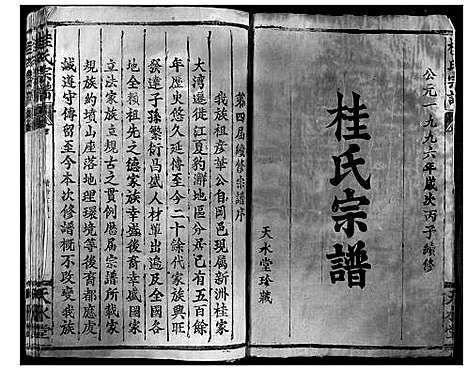 公元一九九六年歲次丙子續修
桂氏宗譜
天水堂珍藏
第四屆續修宗譜序
我族祖產華公自岡邑現屬新洲桂家
大灣遷徙江夏豹澥地區分居已有五百餘
年歷史悠久延傳至今二十餘代家族興旺
發達子孫繁衍昌盛人材單出皆幸國家
地全賴祖先之德家族幸盛後裔幸感國家
立法家族立規古之貫例歷屆宗譜所載家
規族約墳山座落地理環境等後裔都應處
誠遵守傳留至今本次修譜概不改變我族
桂氏宗譜
天水堂